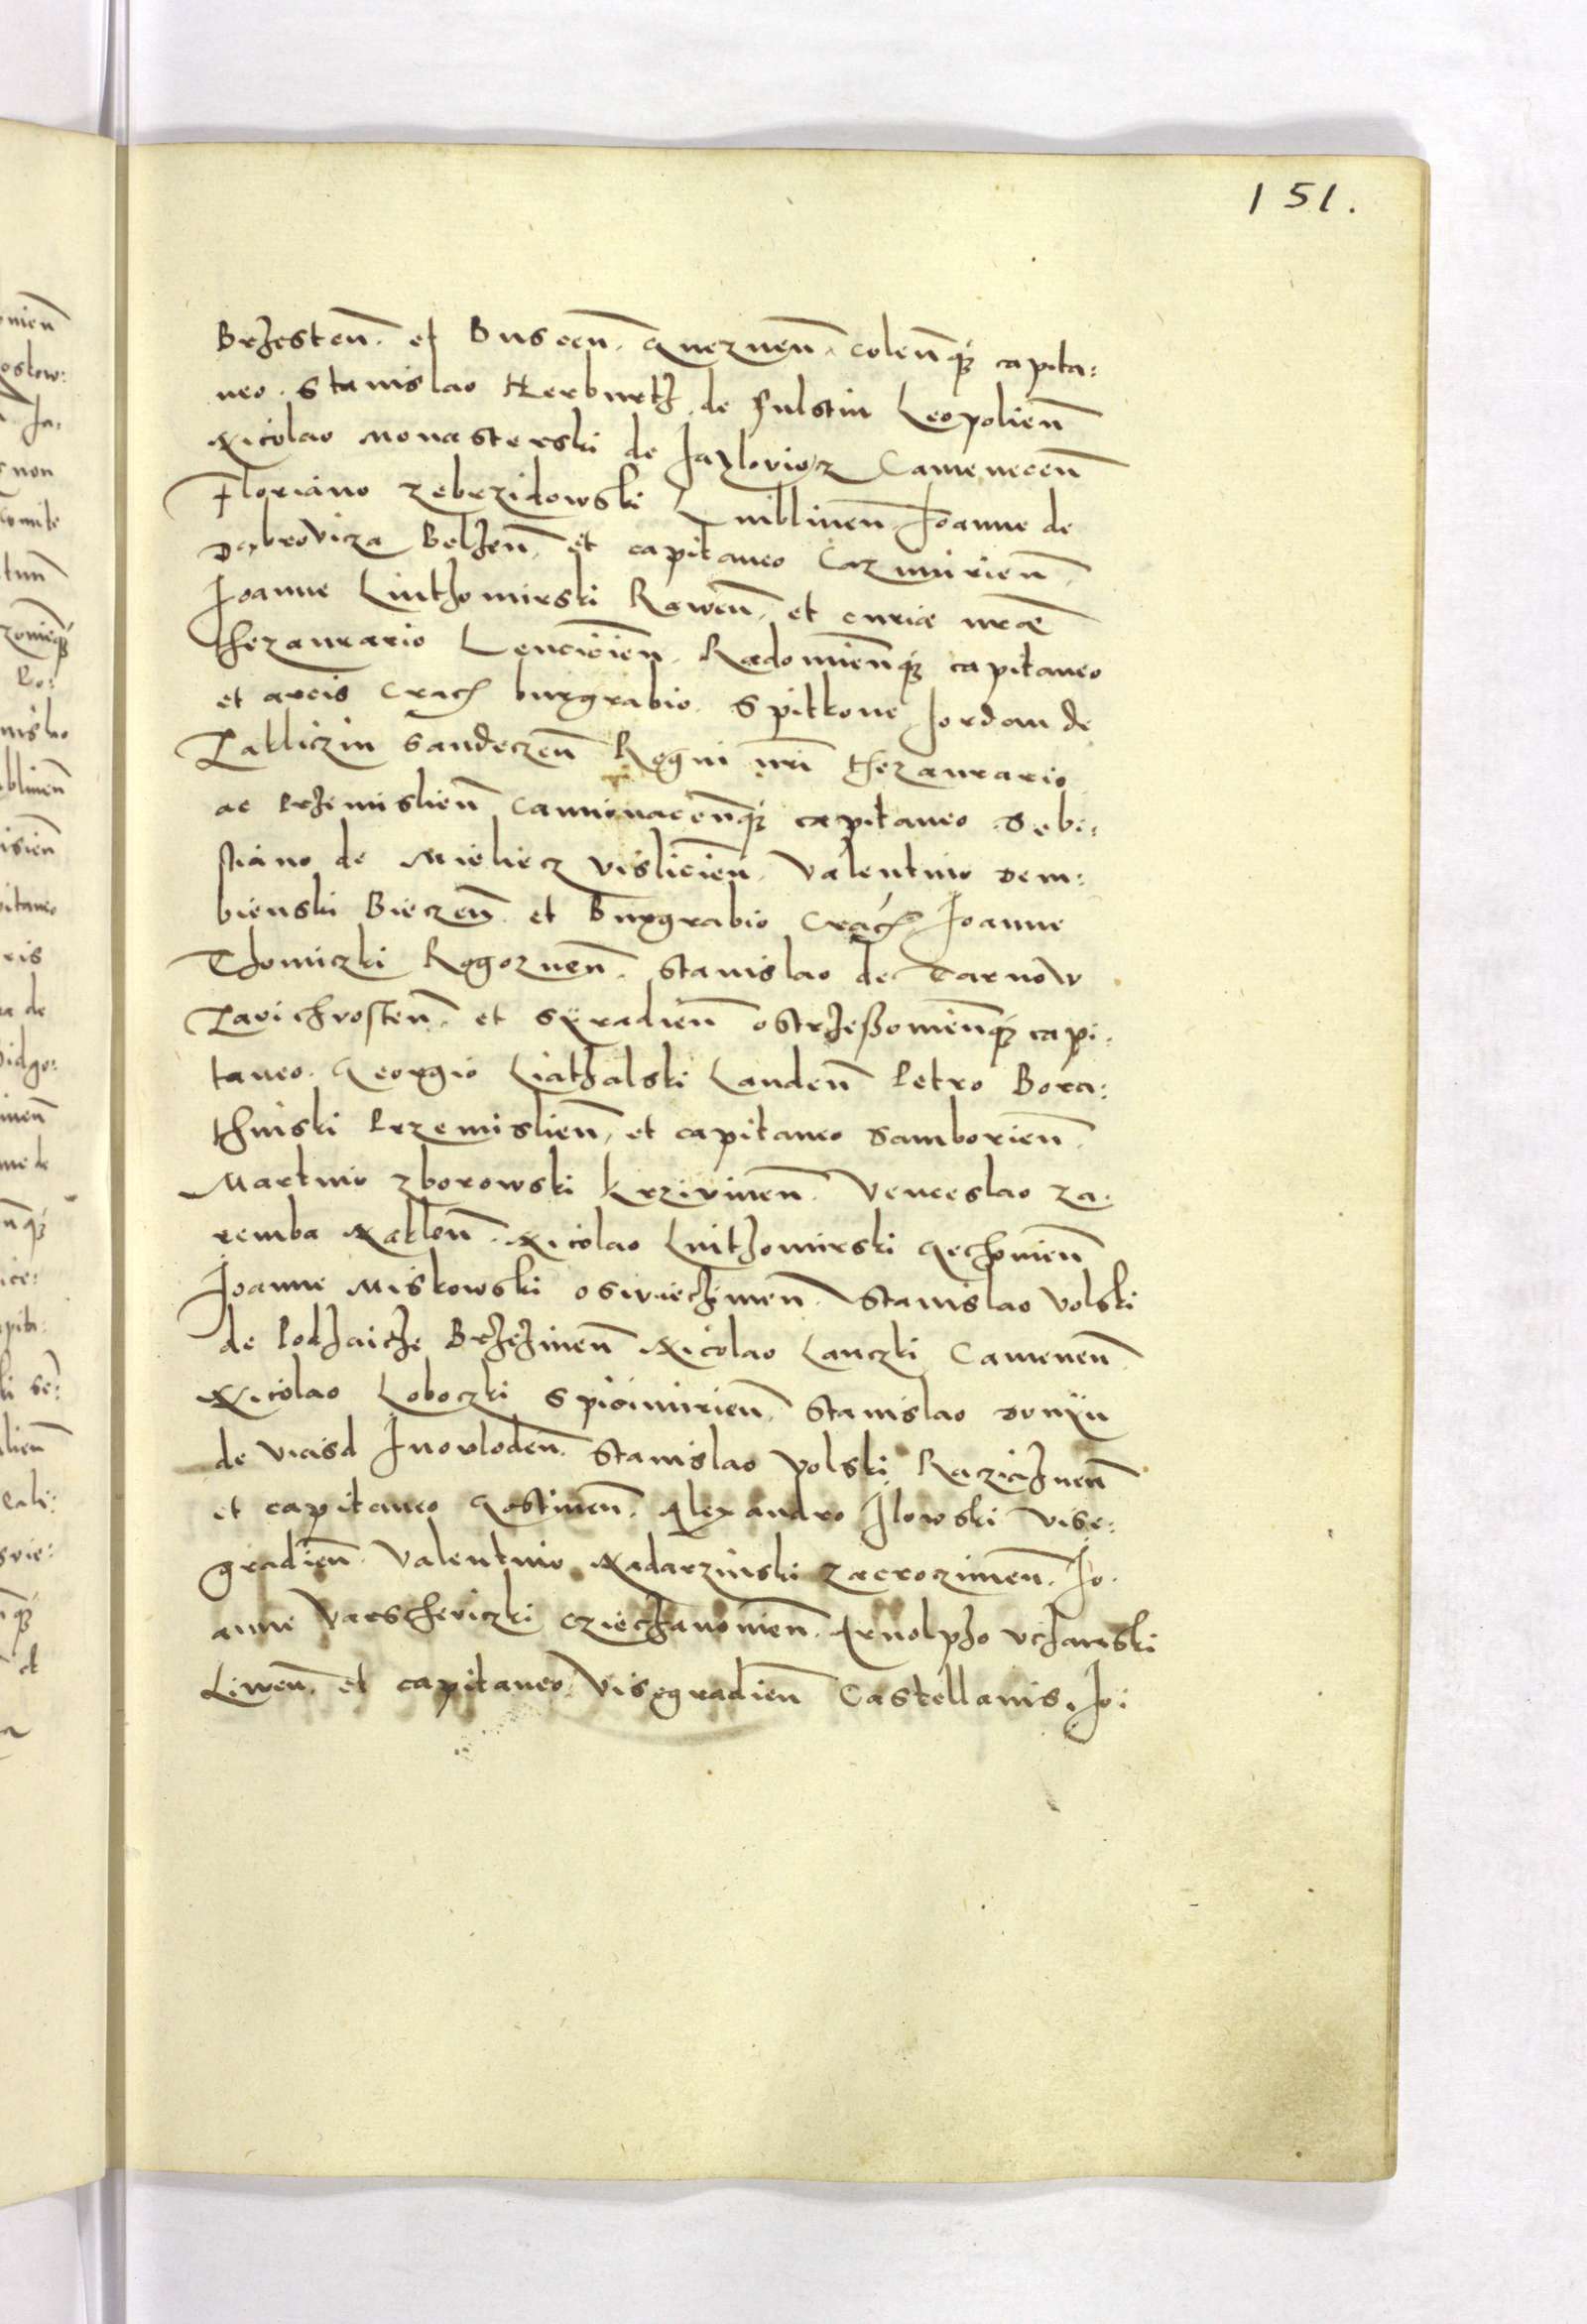 151.
Brzesten̄. et Buscen̄. Gneznen̄. Colen̄q́ȝ capita:
neo. Stanislao Herburth de Fulstin Leopolien̄
Nicolao Monasterski de Jazloviecz Camenecen̄
Floriano Zebrzidowski Lublinen̄. Joanne de
Dąbrovicza Belzen̄. et capitaneo Cazmirien̄.
Joanne Luthomirski Rawen̄. et curiæ nr̄æ
thezaurario Lencicien̄. Radomien̄q́ȝ capitaneo
et arcis Crach burgrabio. Spitkone Jordan de
Zakliczin Sandeczen̄ Regni nr̄i thezaurario
ac Przemislien̄ Camionacen̄q́ȝ capitaneo Seba:
stiano de Mieliecz Vislicien̄. Valentino Dem:
bienski Bieczen̄. et Burgrabio Crach Joanne
Thomiczki Rogoznen̄. Stanislao de Tarnow
Zavichrosten̄. et Syradien̄ Ostrzeßovien̄q́ȝ capi:
taneo. Georgio Liathalski Landen̄ Petro Bora:
thinski Przemislien̄, et capitaneo Samborien̄.
Martino Zborowski Krzivinen̄. Venceslao Za:
remba Naklen̄. Nicolao Luthomirski Czechovien̄
Joanne Miskowski Osviecimen̄. Stanislao Volski
de Podhaitze Brzezinen̄ Nicolao Lanczki Camenen̄
Nicolao Loboczki Spicimirien̄. Stanislao Dunyn
de Viasd Inovloden̄. Stanislao Volski Raziaznen̄
et capitaneo Gostinen̄. Alexandro Ilowski Vise:
gradien̄. Valentino Nadarzinski Zacrozimen̄. Jo:
anne Varscheviczki Cziechanovien̄. Arnolpho Uchanski
Liwen̄. et capitaneo Visegradien̄ Castellanis. Jo: